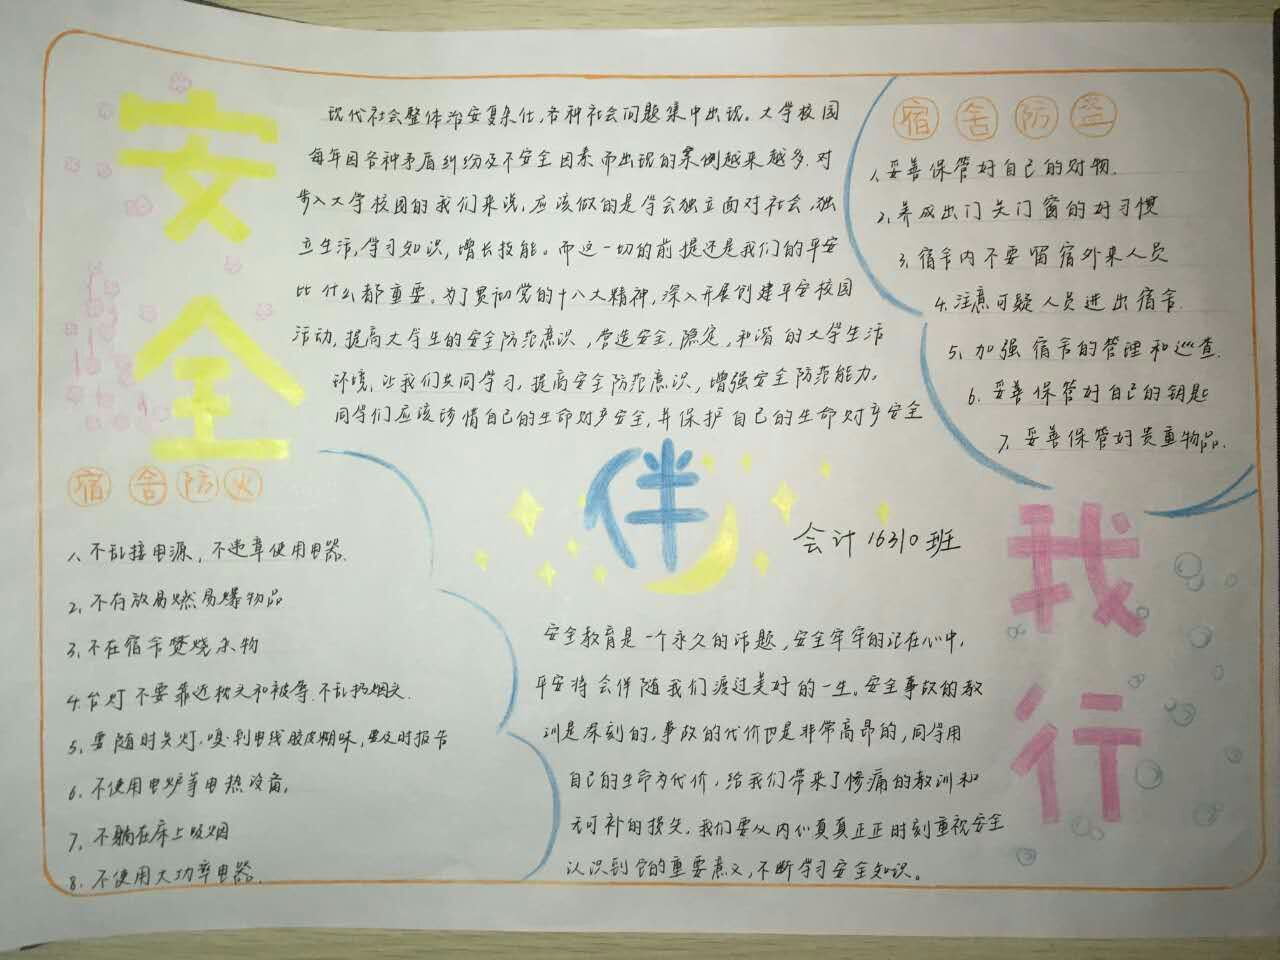 安全
现代社会整体治安复杂化,各种社会问题集中出现。大学校园
每年因各种矛盾纠纷及不安全因素而出现的案例越来越多.对
步入大学校园的我们来说,应该做的是学会独立面对社会,独
立生活,学习知识,增长技能。而这一切的前提还是我们的平安
比什么都重要。为了贯彻党的十八大精神,深入开展创建平安校园
活动,提高大学生的安全防范意识,营造安全,稳定,和谐的大学生活
环境,让我们共同学习,提高安全防范意识,增强安全防范能力.
同学们应该珍惜自己的生命财产安全,并保护自己的生命财产安全
宿舍防盗
1、妥善保管好自己的财物.
2、养成出门关门窗的好习惯
3、宿舍内不要留宿外来人员
4、注意可疑人员进出宿舍.
5、加强宿舍的管理和巡查.
6、妥善保管好自己的钥匙
7、妥善保管好贵重物品.
宿舍防火
1、不乱接电源,不违章使用电器.
2、不存放易燃易爆物品
3、不在宿舍焚烧杂物
4、台灯不要靠近枕头和被褥.不乱扔烟头.
5、要随时关灯.嗅到电线胶皮糊味,要及时报告
6、不使用电炉等电热设备,
7、不躺在床上吸烟
8、不使用大功率电器.
伴
会计16310班
我行
安全教育是一个永久的话题,安全牢牢的记在心中,
平安将会伴随我们渡过美好的一生。安全事故的教
训是深刻的,事故的代价也是非常高昂的,同学用
自己的生命为代价,给我们带来了惨痛的教训和
无可补的损失.我们要从内心真真正正时刻重视安全
认识到它的重要意义,不断学习安全知识。